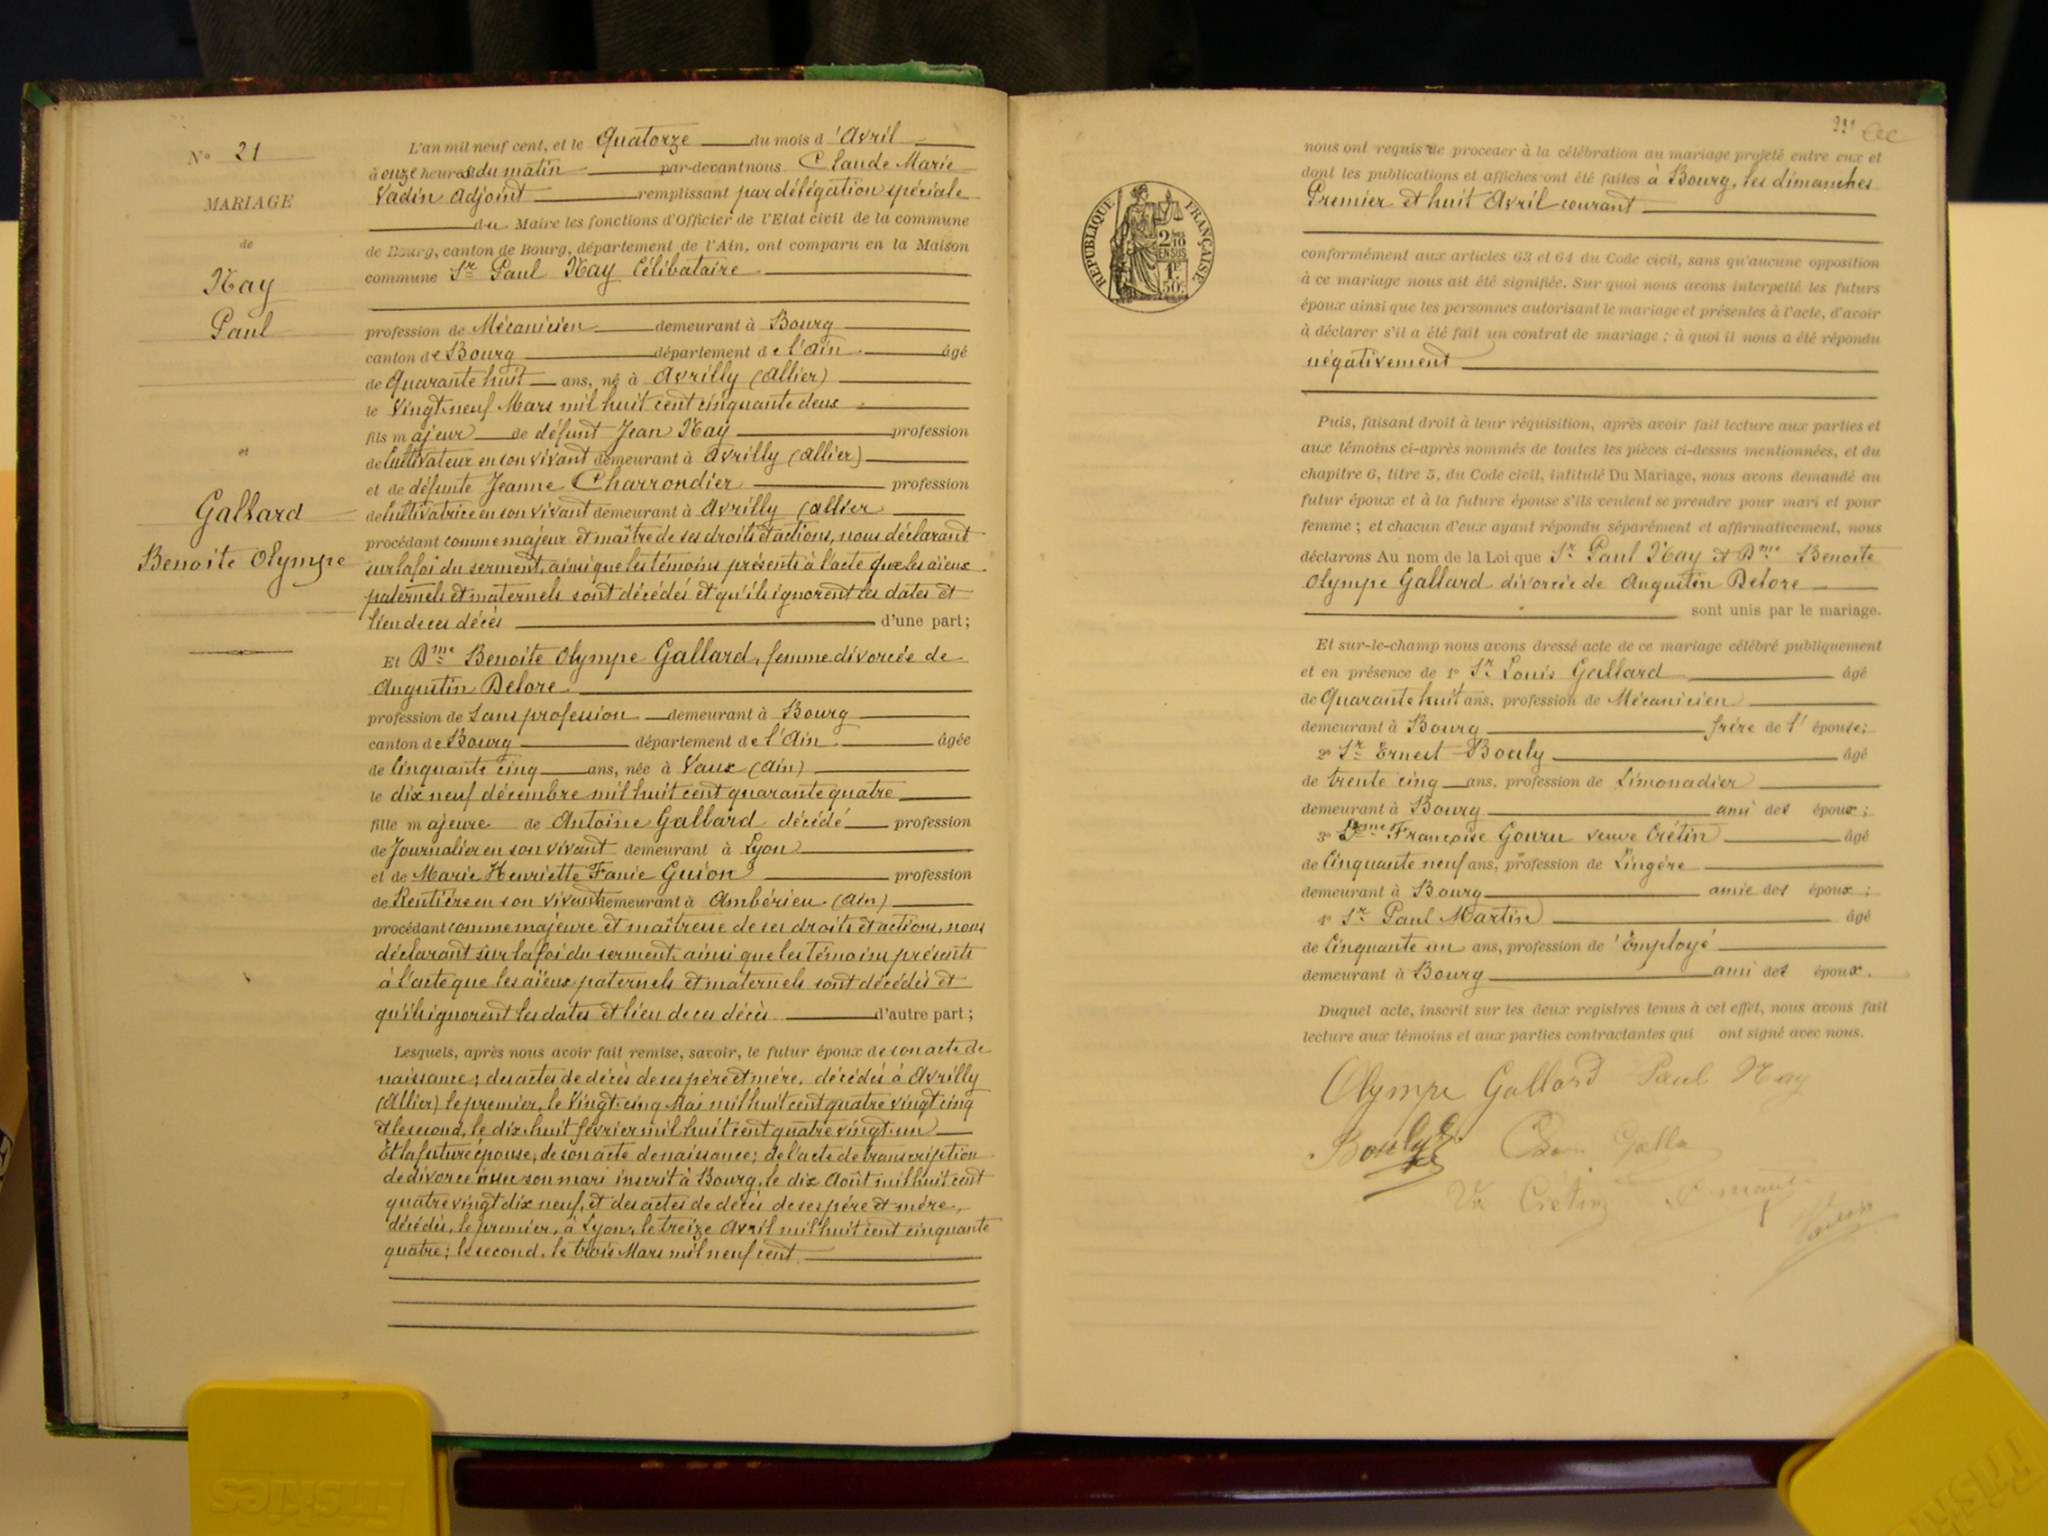 N° 21
MARIAGE
de
Nay
Paul
et
Gallard
Benoite Olympe
L'an mil neuf cent, et le Quatorze du mois d'Avril
à onze heures du matin par-devant nous Claude Marie
Vadin Adjoint remplissant par délégation spéciale
du Maire les fonctions d'Officier de l'Etat civil de la commune
de Bourg, canton de Bourg, département de l'Ain, ont comparu en la Maison
commune Sr Paul Nay Célibataire
profession de Mécanicien demeurant à Bourg
canton de Bourg département de l'Ain âgé
de Quarante huit ans, né à Avrilly (Allier)
le Vingt neuf Mars mil huit cent cinquante deux
fils majeur de défunt Jean Nay profession
de Cultivateur en son vivant demeurant à Avrilly (Allier)
et de défunte Jeanne Charrondier profession
de Cultivatrice en son vivant demeurant à Avrilly (Allier
procédant comme majeur et maître de ses droits et actions, nous déclarant
sur la foi du serment, ainsi que les témoins présents à l'acte que les aïeux
paternels et maternels sont décédés et qu'ils ignorent les dates et
lieu de ces décès d'une part;
Et Dme Benoite Olympe Gallard, femme divorcée de
Augustin Delore
profession de Sans profession demeurant à Bourg
canton de Bourg département de l'Ain âgée
de Cinquante cinq ans, née à Vaux (Ain)
le dix neuf décembre mil huit cent quarante quatre
fille majeure de Antoine Gallard décédé profession
de Journalier en son vivant demeurant à Lyon
et de Marie Henriette Fanie Guion profession
de Rentière en son vivant demeurant à Ambérieu (Ain)
procédant comme majeure et maîtresse de ses droits et actions, nous
déclarant sur la foi du serment, ainsi que les témoins présents
à l'acte que les aïeux paternels et maternels sont décédés et
qu'ils ignorent les dates et lieu de ces décès d'autre part;
Lesquels, après nous avoir fait remise, savoir, le futur époux de son acte de
naissance; des actes de décès de ses père et mère, décédés à Avrilly
(Allier) le premier, le Vingt cinq Mai mil huit cent quatre vingt cinq
et le second, le dix huit février mil huit cent quatre vingt un
Et la future épouse, de son acte de naissance; de l'acte de transcription
de divorce avec son mari inscrit à Bourg, le dix Août mil huit cent
quatre vingt dix neuf, et des actes de décès de ses père et mère,
décédés, le premier, à Lyon, le treize Avril mil huit cent cinquante
quatre; le second, le trois Mars mil neuf cent
RÉPUBLIQUE FRANÇAISE
2/10 EN SUS
1F 50c
nous ont requis de procéder à la célébration du mariage projeté entre eux et
dont les publications et affiches ont été faites à Bourg, les dimanches
Premier et huit Avril courant
conformément aux articles 63 et 64 du Code civil, sans qu'aucune opposition
à ce mariage nous ait été signifiée. Sur quoi nous avons interpellé les futurs
époux ainsi que les personnes autorisant le mariage et présentes à l'acte, d'avoir
à déclarer s'il a été fait un contrat de mariage; à quoi il nous a été répondu
négativement
Puis, faisant droit à leur réquisition, après avoir fait lecture aux parties et
aux témoins ci-après nommés de toutes les pièces ci-dessus mentionnées, et du
chapitre 6, titre 5, du Code civil, intitulé Du Mariage, nous avons demandé au
futur époux et à la future épouse s'ils veulent se prendre pour mari et pour
femme; et chacun d'eux ayant répondu séparément et affirmativement, nous
déclarons Au nom de la Loi que Sr Paul Nay et Dme Benoite
Olympe Gallard divorcée de Augustin Delore
sont unis par le mariage.
Et sur-le-champ nous avons dressé acte de ce mariage célébré publiquement
et en présence de 1° Sr Louis Gallard âgé
de Quarante huit ans, profession de Mécanicien
demeurant à Bourg frère de l'épouse;
2° Sr Ernest Bouly âgé
de trente cinq ans, profession de Limonadier
demeurant à Bourg ami des époux;
3° Dme Françoise Gouru veuve Crétin âgé
de Cinquante neuf ans, profession de Lingère
demeurant à Bourg amie des époux;
4° Sr Paul Martin âgé
de Cinquante un ans, profession d'Employé
demeurant à Bourg ami des époux.
Duquel acte, inscrit sur les deux registres tenus à cet effet, nous avons fait
lecture aux témoins et aux parties contractantes qui ont signé avec nous.
Olympe Gallard Paul Nay
Bouly
Ve Crétin
Vadin